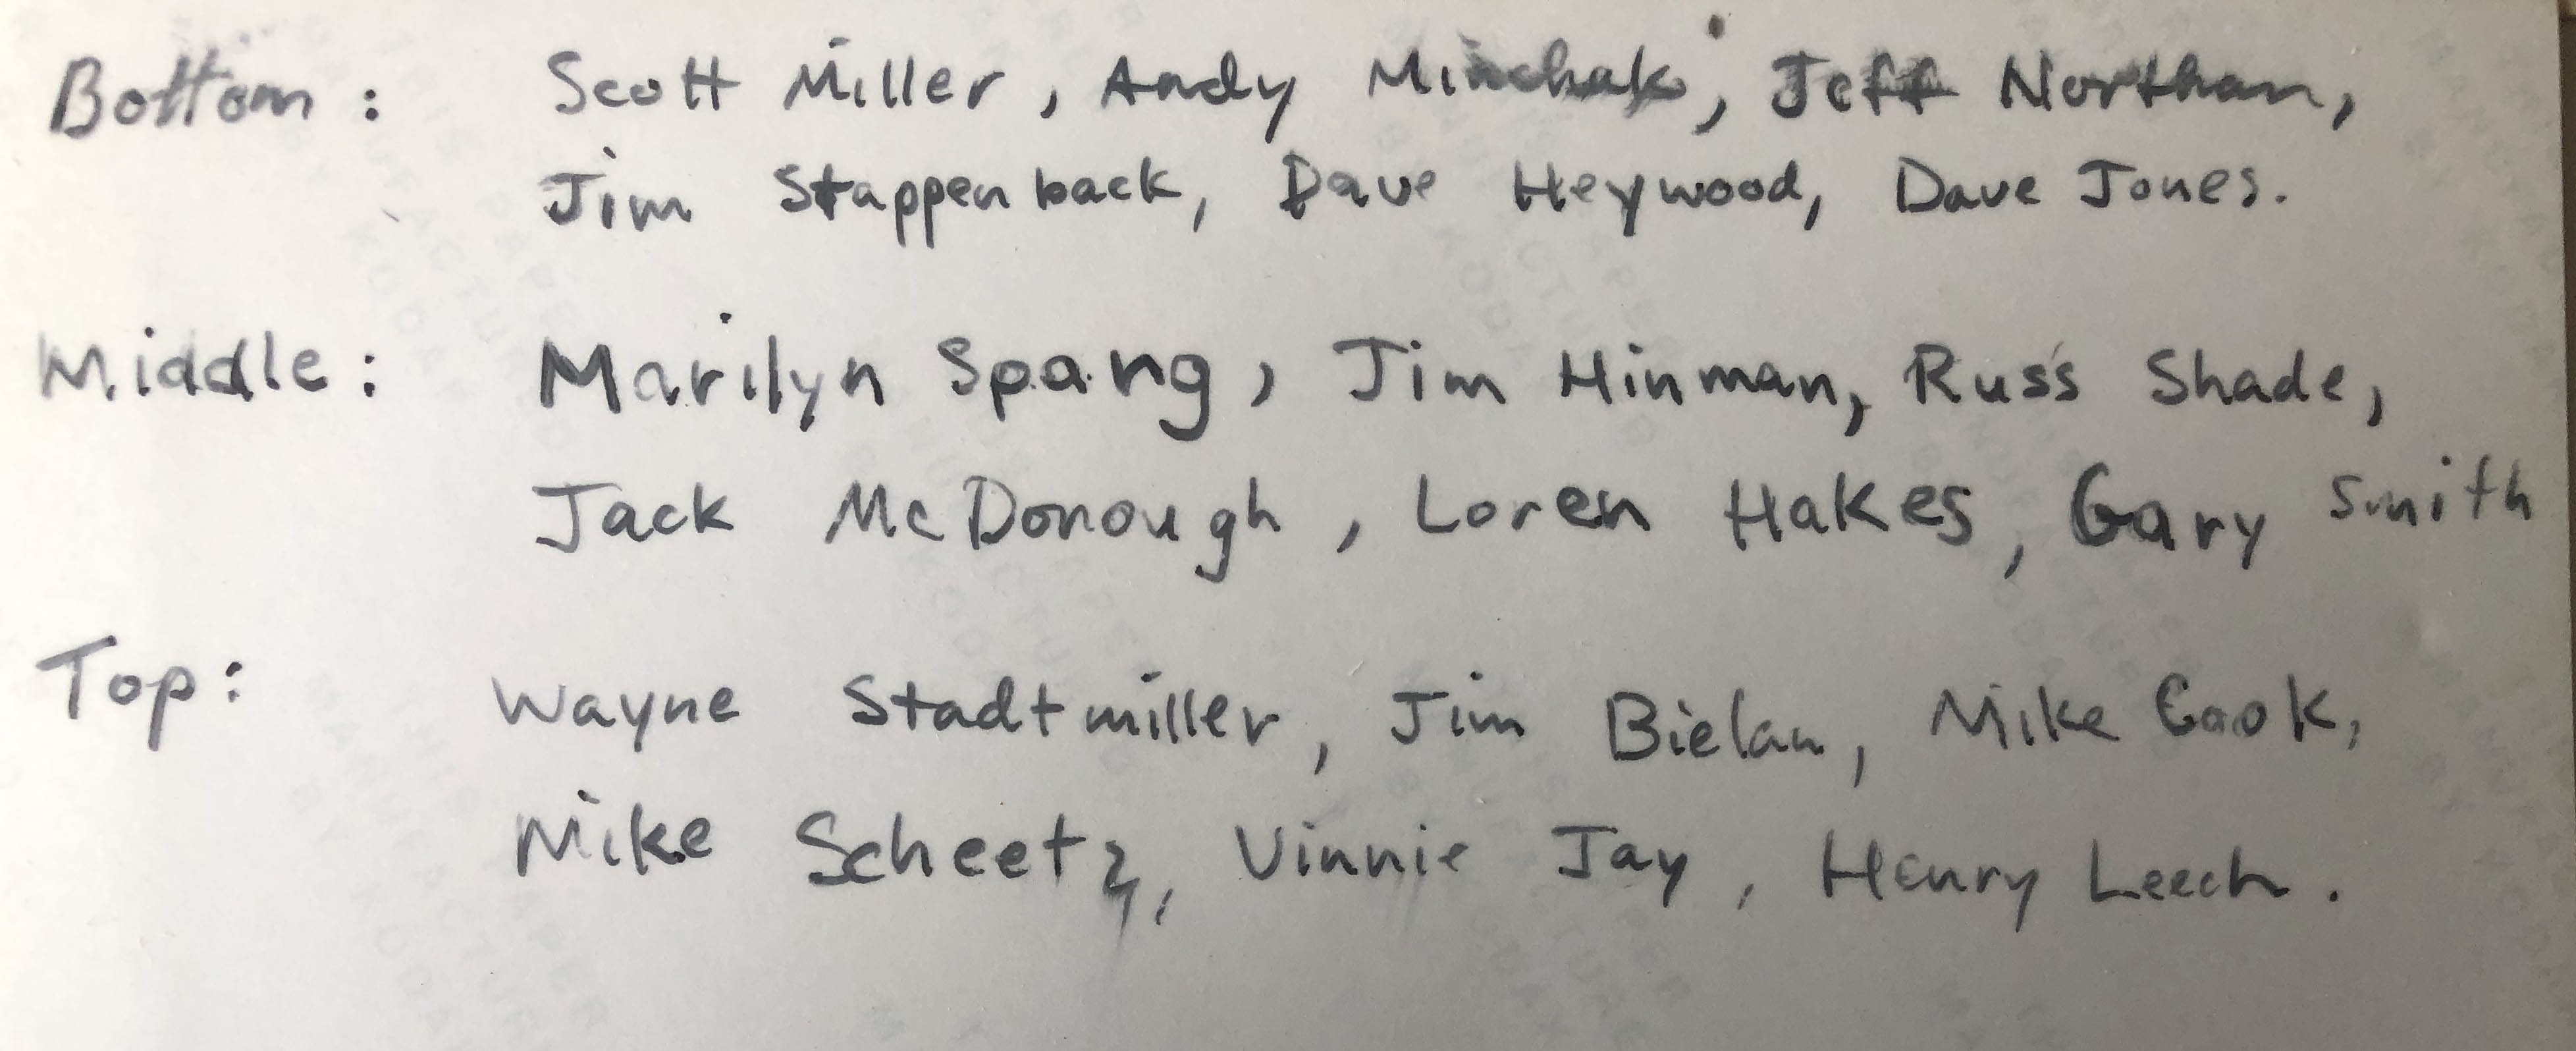 Bottom: Scott Miller, Andy Minchak, Jeff Northan,
Jim Stappenback, Dave Heywood, Dave Jones.
Middle: Marilyn Spang, Jim Hinman, Russ Shade,
Jack McDonough, Loren Hakes, Gary Smith
Top: Wayne Stadtmiller, Jim Bielan, Mike Cook,
Mike Scheetz, Vinnie Jay, Henry Leech.